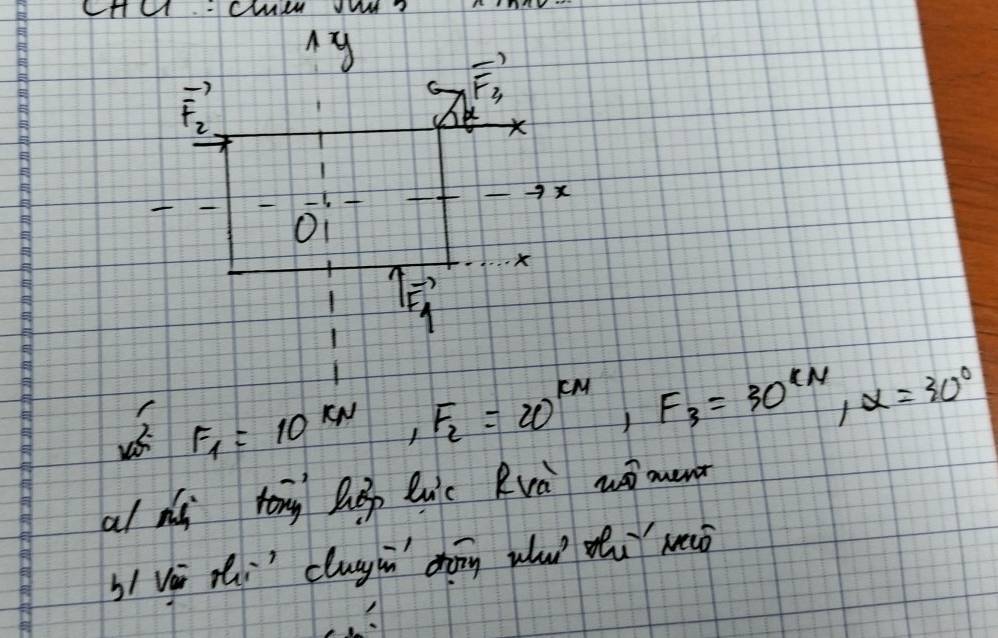 y
F₂
F₃
α
x
x
O
x
F₁
với F₁ = 10 KN , F₂ = 20 KN , F₃ = 30 KN , α = 30°
a/ tổng hợp lực R và môment
b/ Vật chuyển động như thế nào